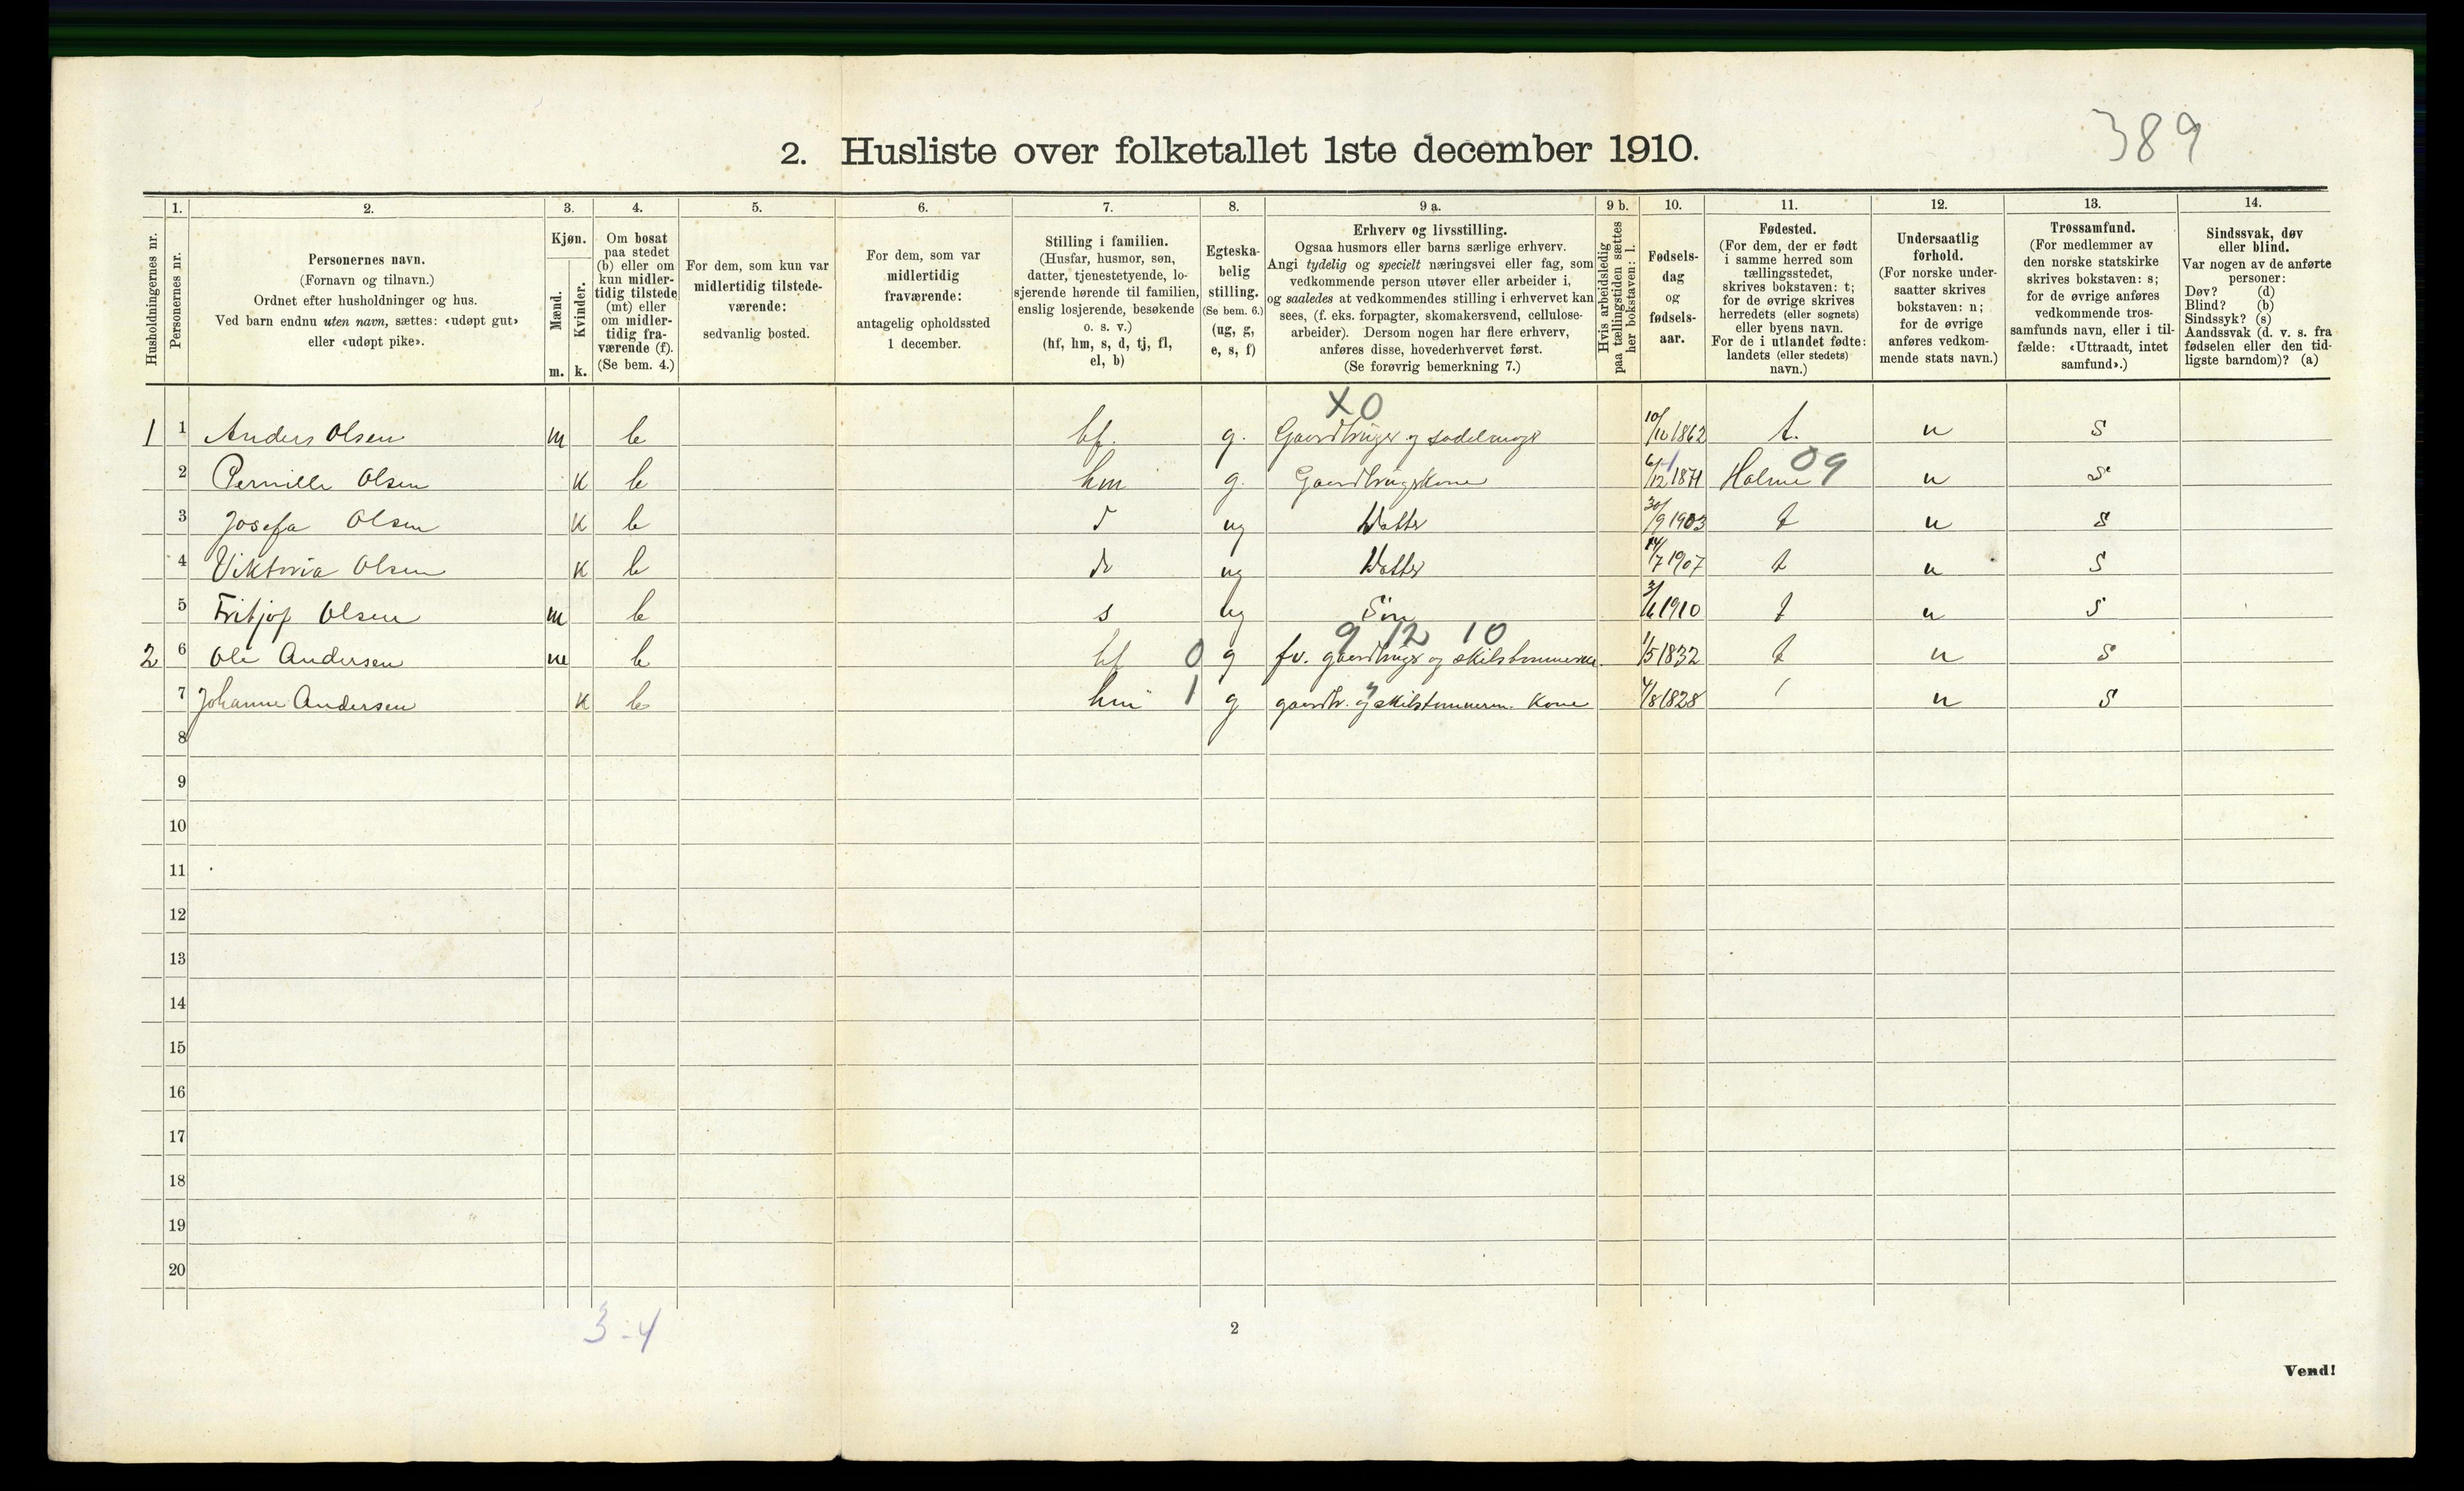 389
2. Husliste over folketallet 1ste december 1910.
Husholdningernes nr.
1. Personernes nr.
2. Personernes navn.
(Fornavn og tilnavn.)
Ordnet efter husholdninger og hus.
Ved barn endnu uten navn, sættes: «udøpt gut»
eller «udøpt pike».
3. Kjøn.
Mænd. m.
Kvinder. k.
4. Om bosat
paa stedet
(b) eller om
kun midler-
tidig tilstede
(mt) eller
om midler-
tidig fra-
værende (f).
(Se bem. 4.)
5. For dem, som kun var
midlertidig tilstede-
værende:
sedvanlig bosted.
6. For dem, som var
midlertidig
fraværende:
antagelig opholdssted
1 december.
7. Stilling i familien.
(Husfar, husmor, søn,
datter, tjenestetyende, lo-
sjerende hørende til familien,
enslig losjerende, besøkende
o. s. v.)
(hf, hm, s, d, tj, fl,
el, b)
8. Egteska-
belig
stilling.
(Se bem. 6.)
(ug, g,
e, s, f)
9 a. Erhverv og livsstilling.
Ogsaa husmors eller barns særlige erhverv.
Angi tydelig og specielt næringsvei eller fag, som
vedkommende person utøver eller arbeider i,
og saaledes at vedkommendes stilling i erhvervet kan
sees, (f. eks. forpagter, skomakersvend, cellulose-
arbeider). Dersom nogen har flere erhverv,
anføres disse, hovederhvervet først.
(Se forøvrig bemerkning 7.)
9 b. Hvis arbeidsledig
paa tællingstiden sættes
her bokstaven: l.
10. Fødsels-
dag
og
fødsels-
aar.
11. Fødested.
(For dem, der er født
i samme herred som
tællingsstedet,
skrives bokstaven: t;
for de øvrige skrives
herredets (eller sognets)
eller byens navn.
For de i utlandet fødte:
landets (eller stedets)
navn.)
12. Undersaatlig
forhold.
(For norske under-
saatter skrives
bokstaven: n;
for de øvrige
anføres vedkom-
mende stats navn.)
13. Trossamfund.
(For medlemmer av
den norske statskirke
skrives bokstaven: s;
for de øvrige anføres
vedkommende tros-
samfunds navn, eller i til-
fælde: «Uttraadt, intet
samfund».)
14. Sindssvak, døv
eller blind.
Var nogen av de anførte
personer:
Døv? (d)
Blind? (b)
Sindssyk? (s)
Aandssvak (d. v. s. fra
fødselen eller den tid-
ligste barndom)? (a)
X0
1 1 Anders Olsen m b hf. g. Gaardbruger og sadelmager 10/10 1862 t. n s
09
2 Pernille Olsen k b hm g. Gaardbrugskone 6/12 1871 Halme n s
3 Josefa Olsen k b d ug Datter 30/9 1903 t n s
4 Viktoria Olsen k b d ug Datter 14/7 1907 t n s
5 Fritjof Olsen m b s ug Søn 3/6 1910 t n s
9 12 10
2 6 Ole Andersen m b hf 0 g fv. gaardbruger og skibstømmerm. 1/5 1832 t n s
7 Johanne Andersen k b hm 1 g gaardbr. og skibstømmerm. kone 4/8 1828 n s
8
9
10
11
12
13
14
15
16
17
18
19
20
3-4
2
Vend!